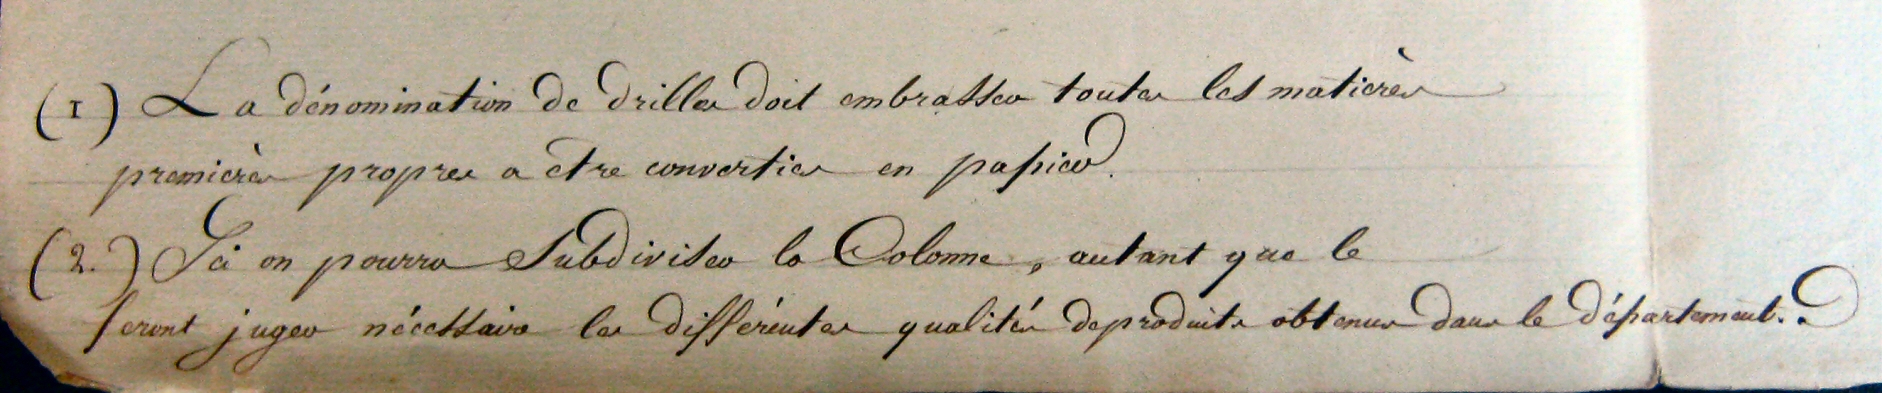 (1) La dénomination de drilles doit embrasser toutes les matières
premières propres a etre converties en papier.
(2.) Ici on pourra subdiviser la Colonne, autant que le
feront juger nécessaire les différentes qualités de produits obtenus dans le département.